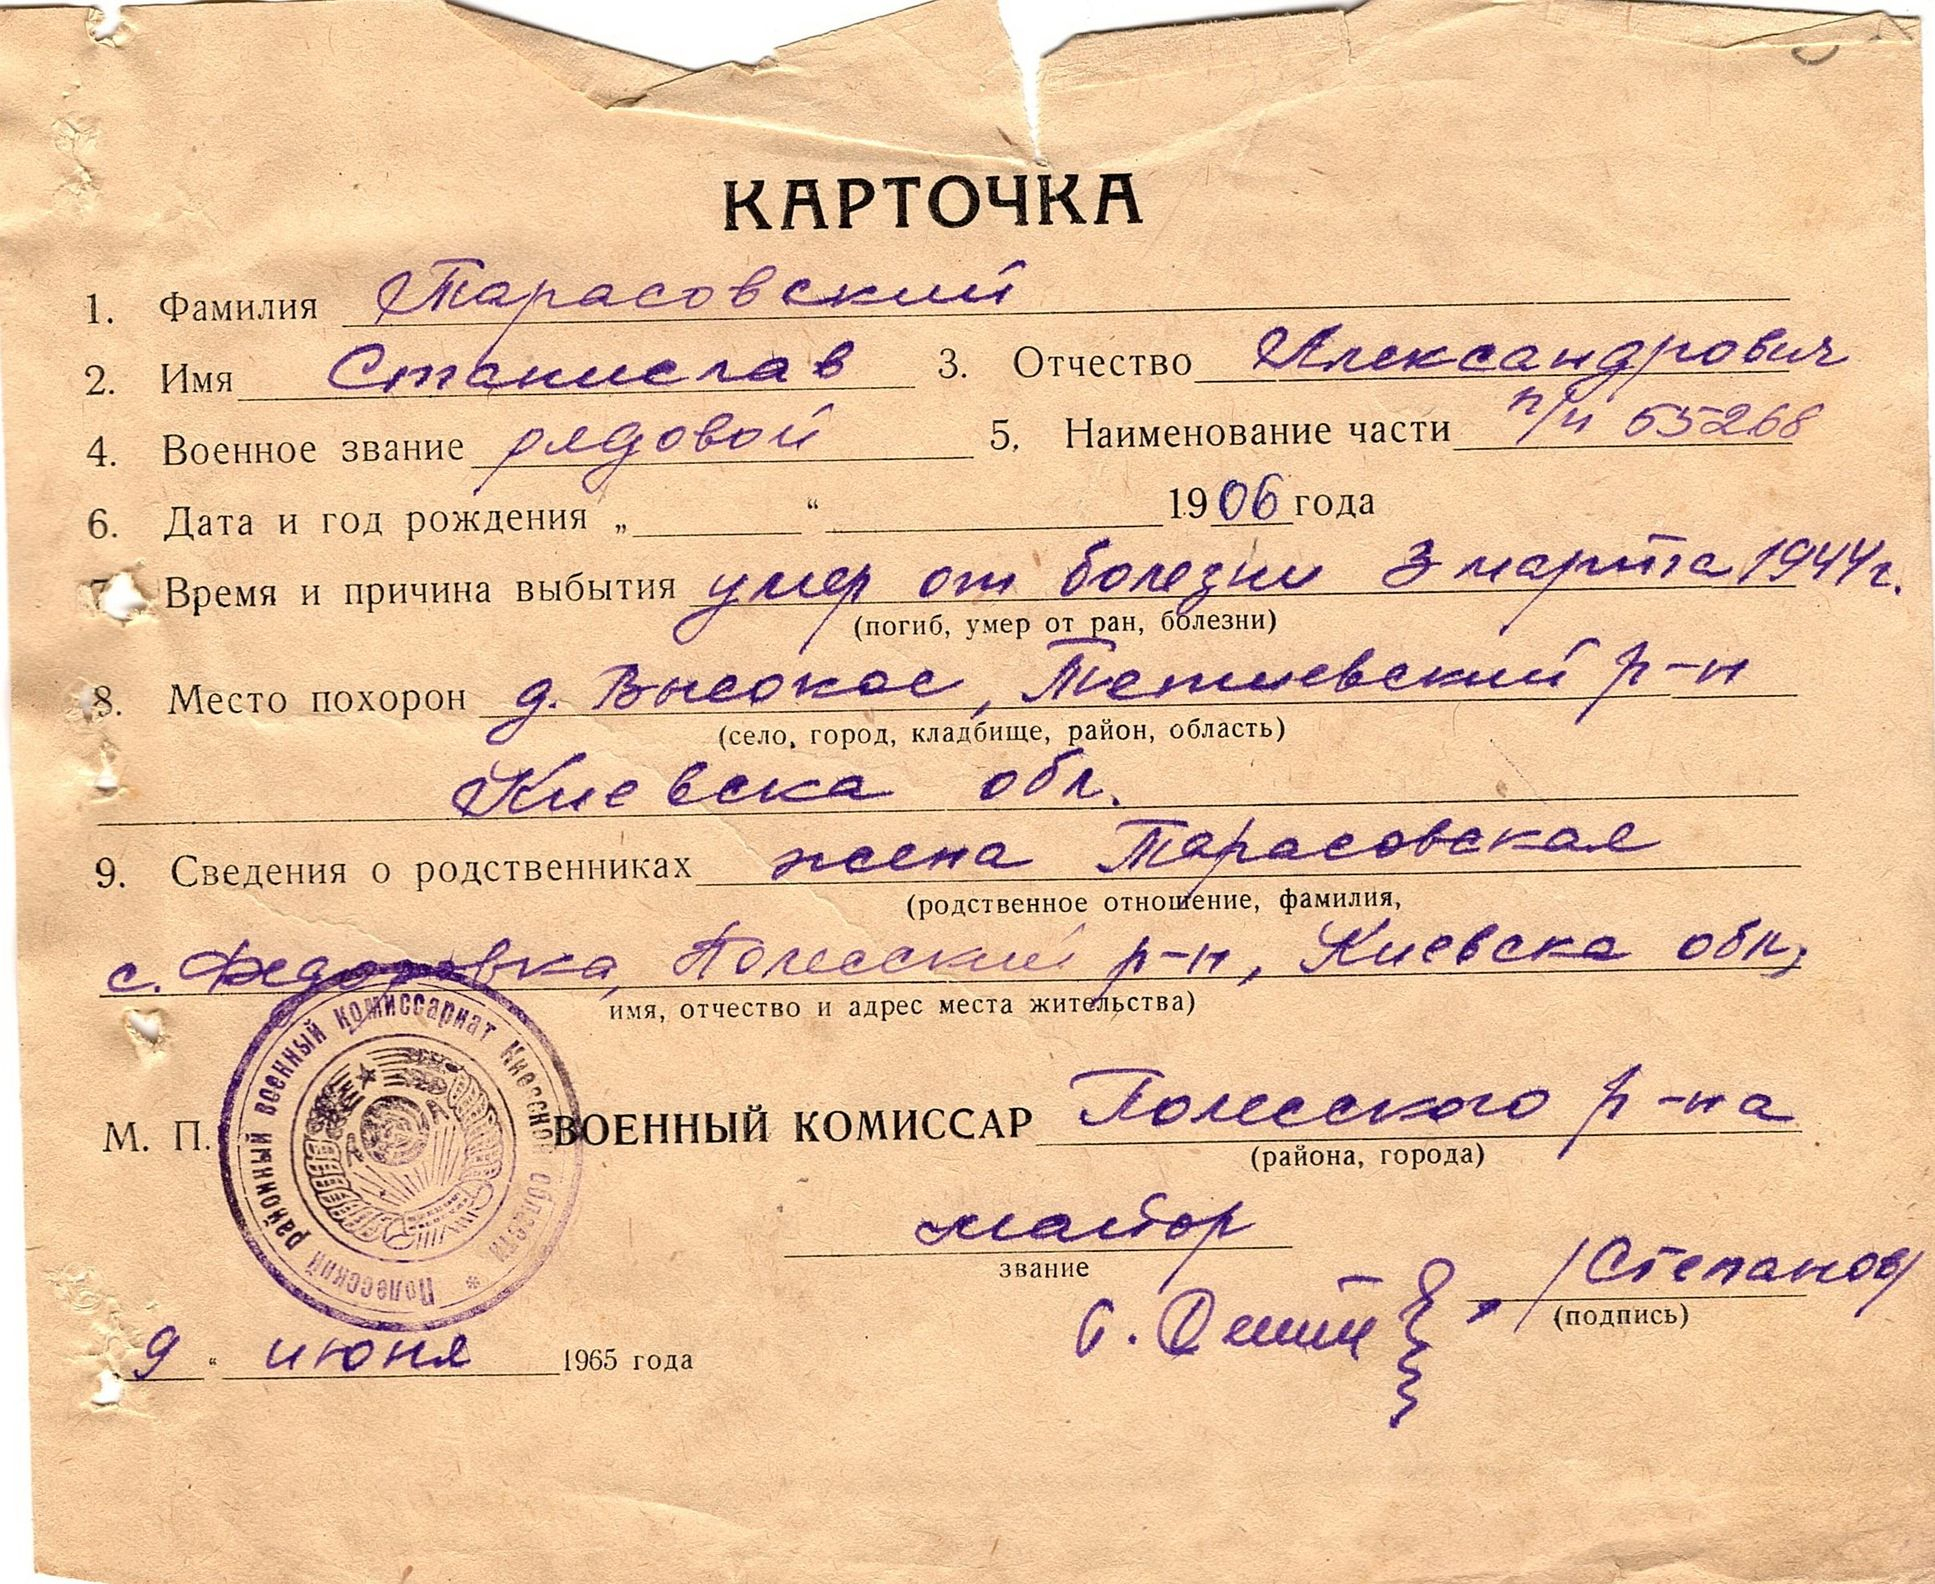 КАРТОЧКА
1. Фамилия Тарасовский
2. Имя Станислав 3. Отчество Александрович
4. Военное звание рядовой 5. Наименование части п/ч 55268
6. Дата и год рождения „ “ 1906 года
7. Время и причина выбытия умер от болезни 3 марта 1944 г.
(погиб, умер от ран, болезни)
8. Место похорон д. Высокое, Тетиевский р-н
(село, город, кладбище, район, область)
Киевска обл.
9. Сведения о родственниках жена Тарасовская
(родственное отношение, фамилия,
с. Федоровка, Полесский р-н, Киевска обл,
имя, отчество и адрес места жительства)
М. П. ВОЕННЫЙ КОМИССАР Полесского р-на
(района, города)
Полесский районный военный комиссариат Киевской области *
майор
звание
/Степанов/
(подпись)
9 “ июня 1965 года